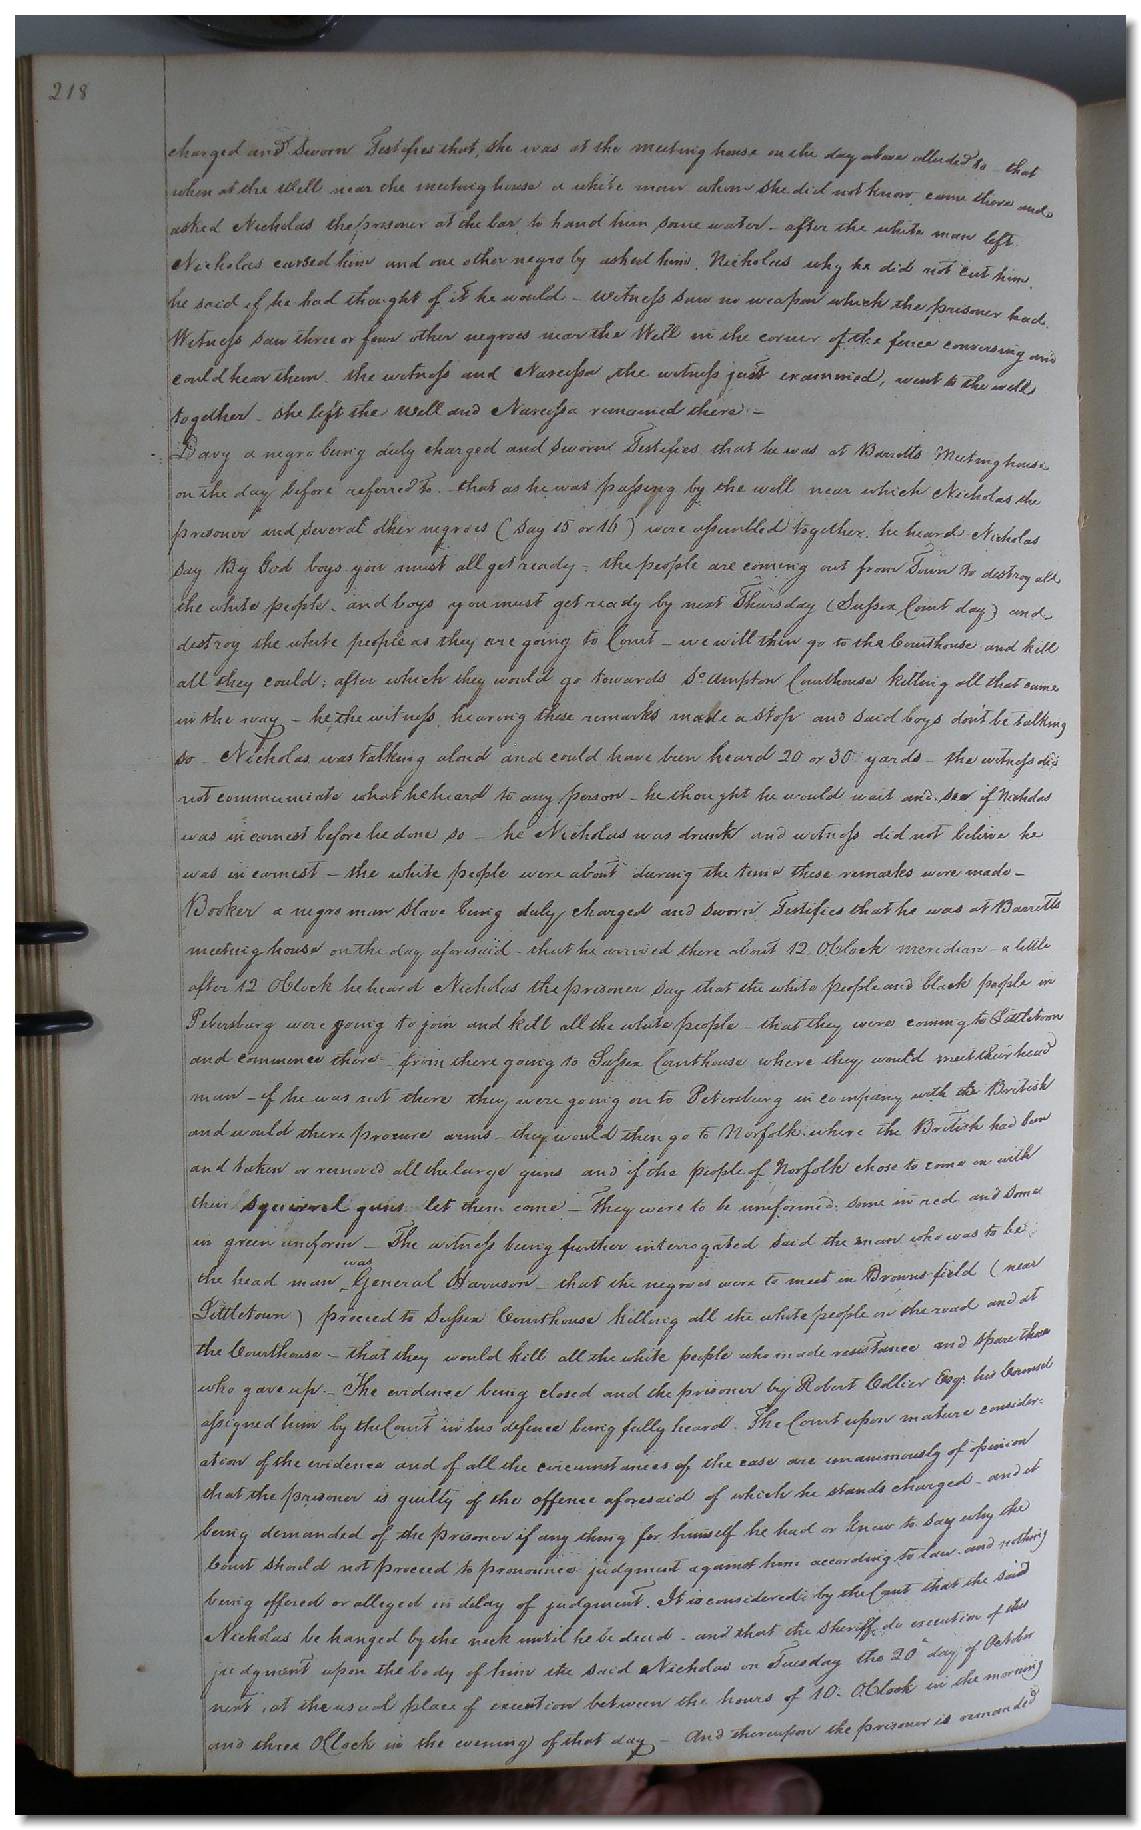 218
charged and sworn Testifies that, she was at the meeting house on the day above alluded to - that
when at the Well near the meeting house a white man whom she did not know, came there and
asked Nicholas the prisoner at the bar, to hand him some water - after the white man left
Nicholas cursed him and one other negro by asked him, Nicholas why he did not cut him,
he said if he had thought of it he would - witness saw no weapon which the prisoner had.
Witness saw three or four other negroes near the Well in the corner of the fence conversing and
could hear them. the witness and Narcissa, the witness just examined, went to the well
together - she left the well and Narcissa remained there. -
Davy a negro being duly charged and sworn Testifies, that he was at Barretts Meetinghouse
on the day before referred to. - that as he was passing by the well near which Nicholas the
prisoner and several other negroes (say 15 or 16) were assembled together. he heard Nicholas
say By God boys you must all get ready - the people are coming out from Town to destroy all
the white people. and boys you must get ready by next Thursday (Sussex Court day) and
destroy the white people as they are going to Court - we will then go to the Courthouse and kill
all they could; after which they would go towards So ampton Courthouse killing all that came
in the way - he, the witness, hearing these remarks made a stop and said boys dont be talking
so - Nicholas was talking aloud and could have been heard 20 or 30 yards - the witness did
not communicate what he heard to any person - he thought he would wait and see if Nicholas
was in earnest before he done so - he Nicholas was drunk and witness did not believe he
was in earnest - the white people were about during the time these remarks were made -
Booker a negro man slave being duly charged and sworn Testifies that he was at Barretts
meeting house on the day aforesaid - that he arrived there about 12 OClock meridian - a little
after 12 OClock he heard Nicholas the prisoner say that the white people and black people in
Petersburg were going to join and kill all the white people - that they were coming to Littletown
and commence there - from there going to Sussex Courthouse where they would meet their head
man - if he was not there they were going on to Petersburg in company with the British
and would there procure arms - they would then go to Norfolk where the British had been
and taken or removed all the large guns and if the people of Norfolk chose to come on with
their squirrel guns let them come - They were to be uniformed, some in red and some
in green uniform - The witness being further interrogated said the man who was to be
the head man was General Harrison - that the negroes were to meet in Browns field (near
Littletown) proceed to Sussex Courthouse killing all the white people on the road and at
the Courthouse - that they would kill all the white people who made resistance and spare those
who gave up. - The evidence being closed and the prisoner by Robert Collier Esqr. his Counsel
assigned him by the Court in his defence being fully heard. The Court upon mature consider-
ation of the evidence and of all the circumstances of the case are unanimously of opinion
that the prisoner is guilty of the offence aforesaid of which he stands charged - and it
being demanded of the prisoner if any thing for himself he had or knew to say why the
Court should not proceed to pronounce judgment against him according to law - and nothing
being offered or alleged in delay of judgment. It is considered by the Court that the said
Nicholas be hanged by the neck until he be dead - and that the Sheriff do execution of this
judgment upon the body of him the said Nicholas on Tuesday the 20th day of October
next, at the usual place of execution between the hours of 10 OClock in the morning
and three OClock in the evening of that day - And thereupon the prisoner is remanded